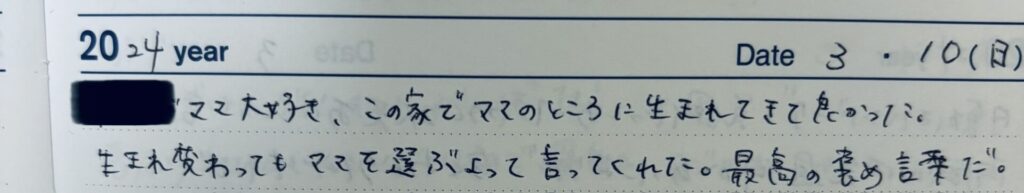 2024 year Date 3・10(日)
"ママ大好き、この家でママのところに生まれてきて良かった。
生まれ変わってもママを選ぶよって言ってくれた。最高の褒め言葉だ。